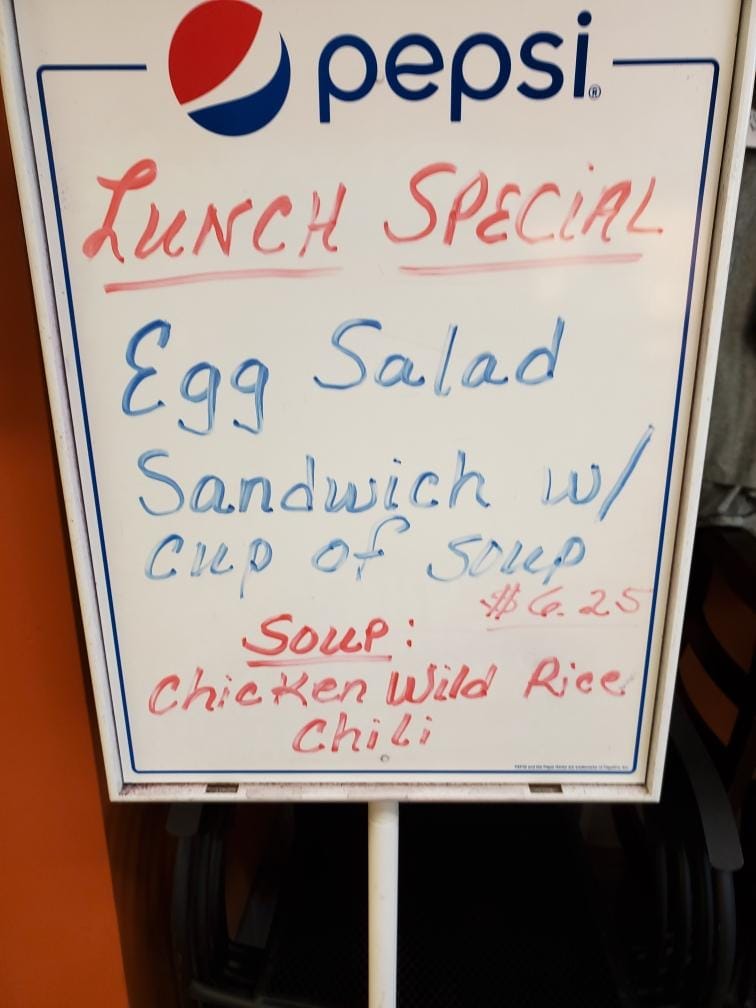 pepsi®
LUNCH SPECIAL
Egg Salad
Sandwich w/
cup of soup
$6.25
Soup:
Chicken Wild Rice
Chili